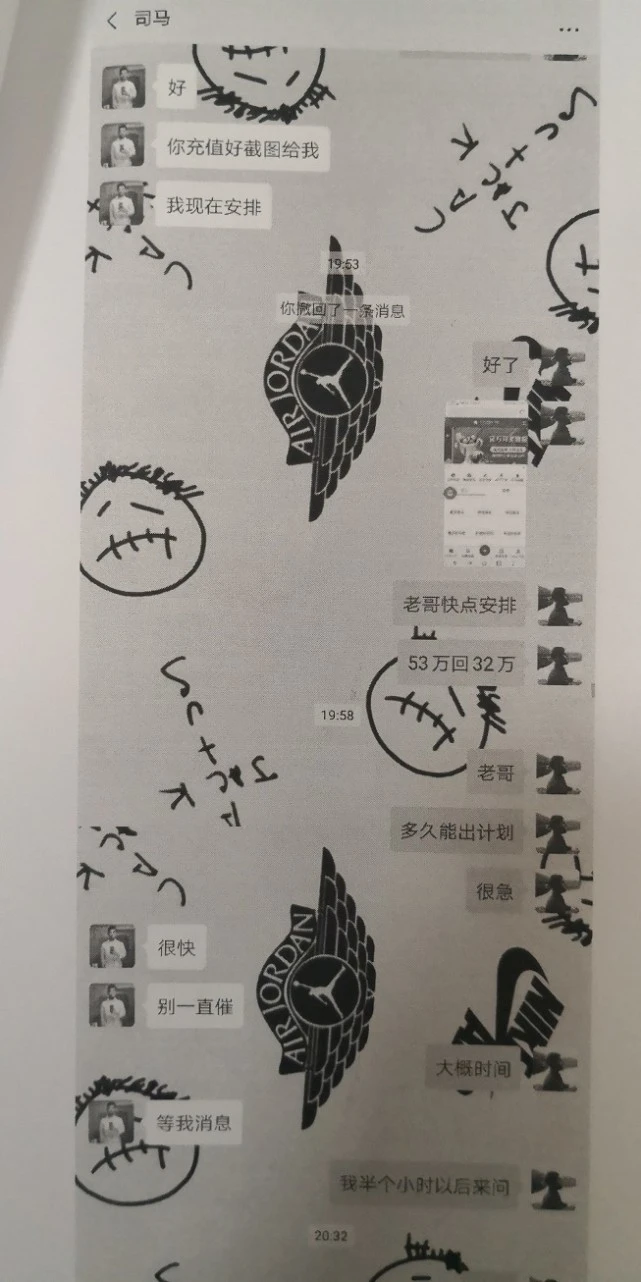 司马
...
好
你充值好截图给我
我现在安排
19:53
你撤回了一条消息
好了
老哥快点安排
53万回32万
19:58
老哥
多久能出计划
很急
很快
别一直催
大概时间
等我消息
我半个小时以后来问
20:32
AIR JORDAN
AIR JORDAN
NIK
JACK
JACK